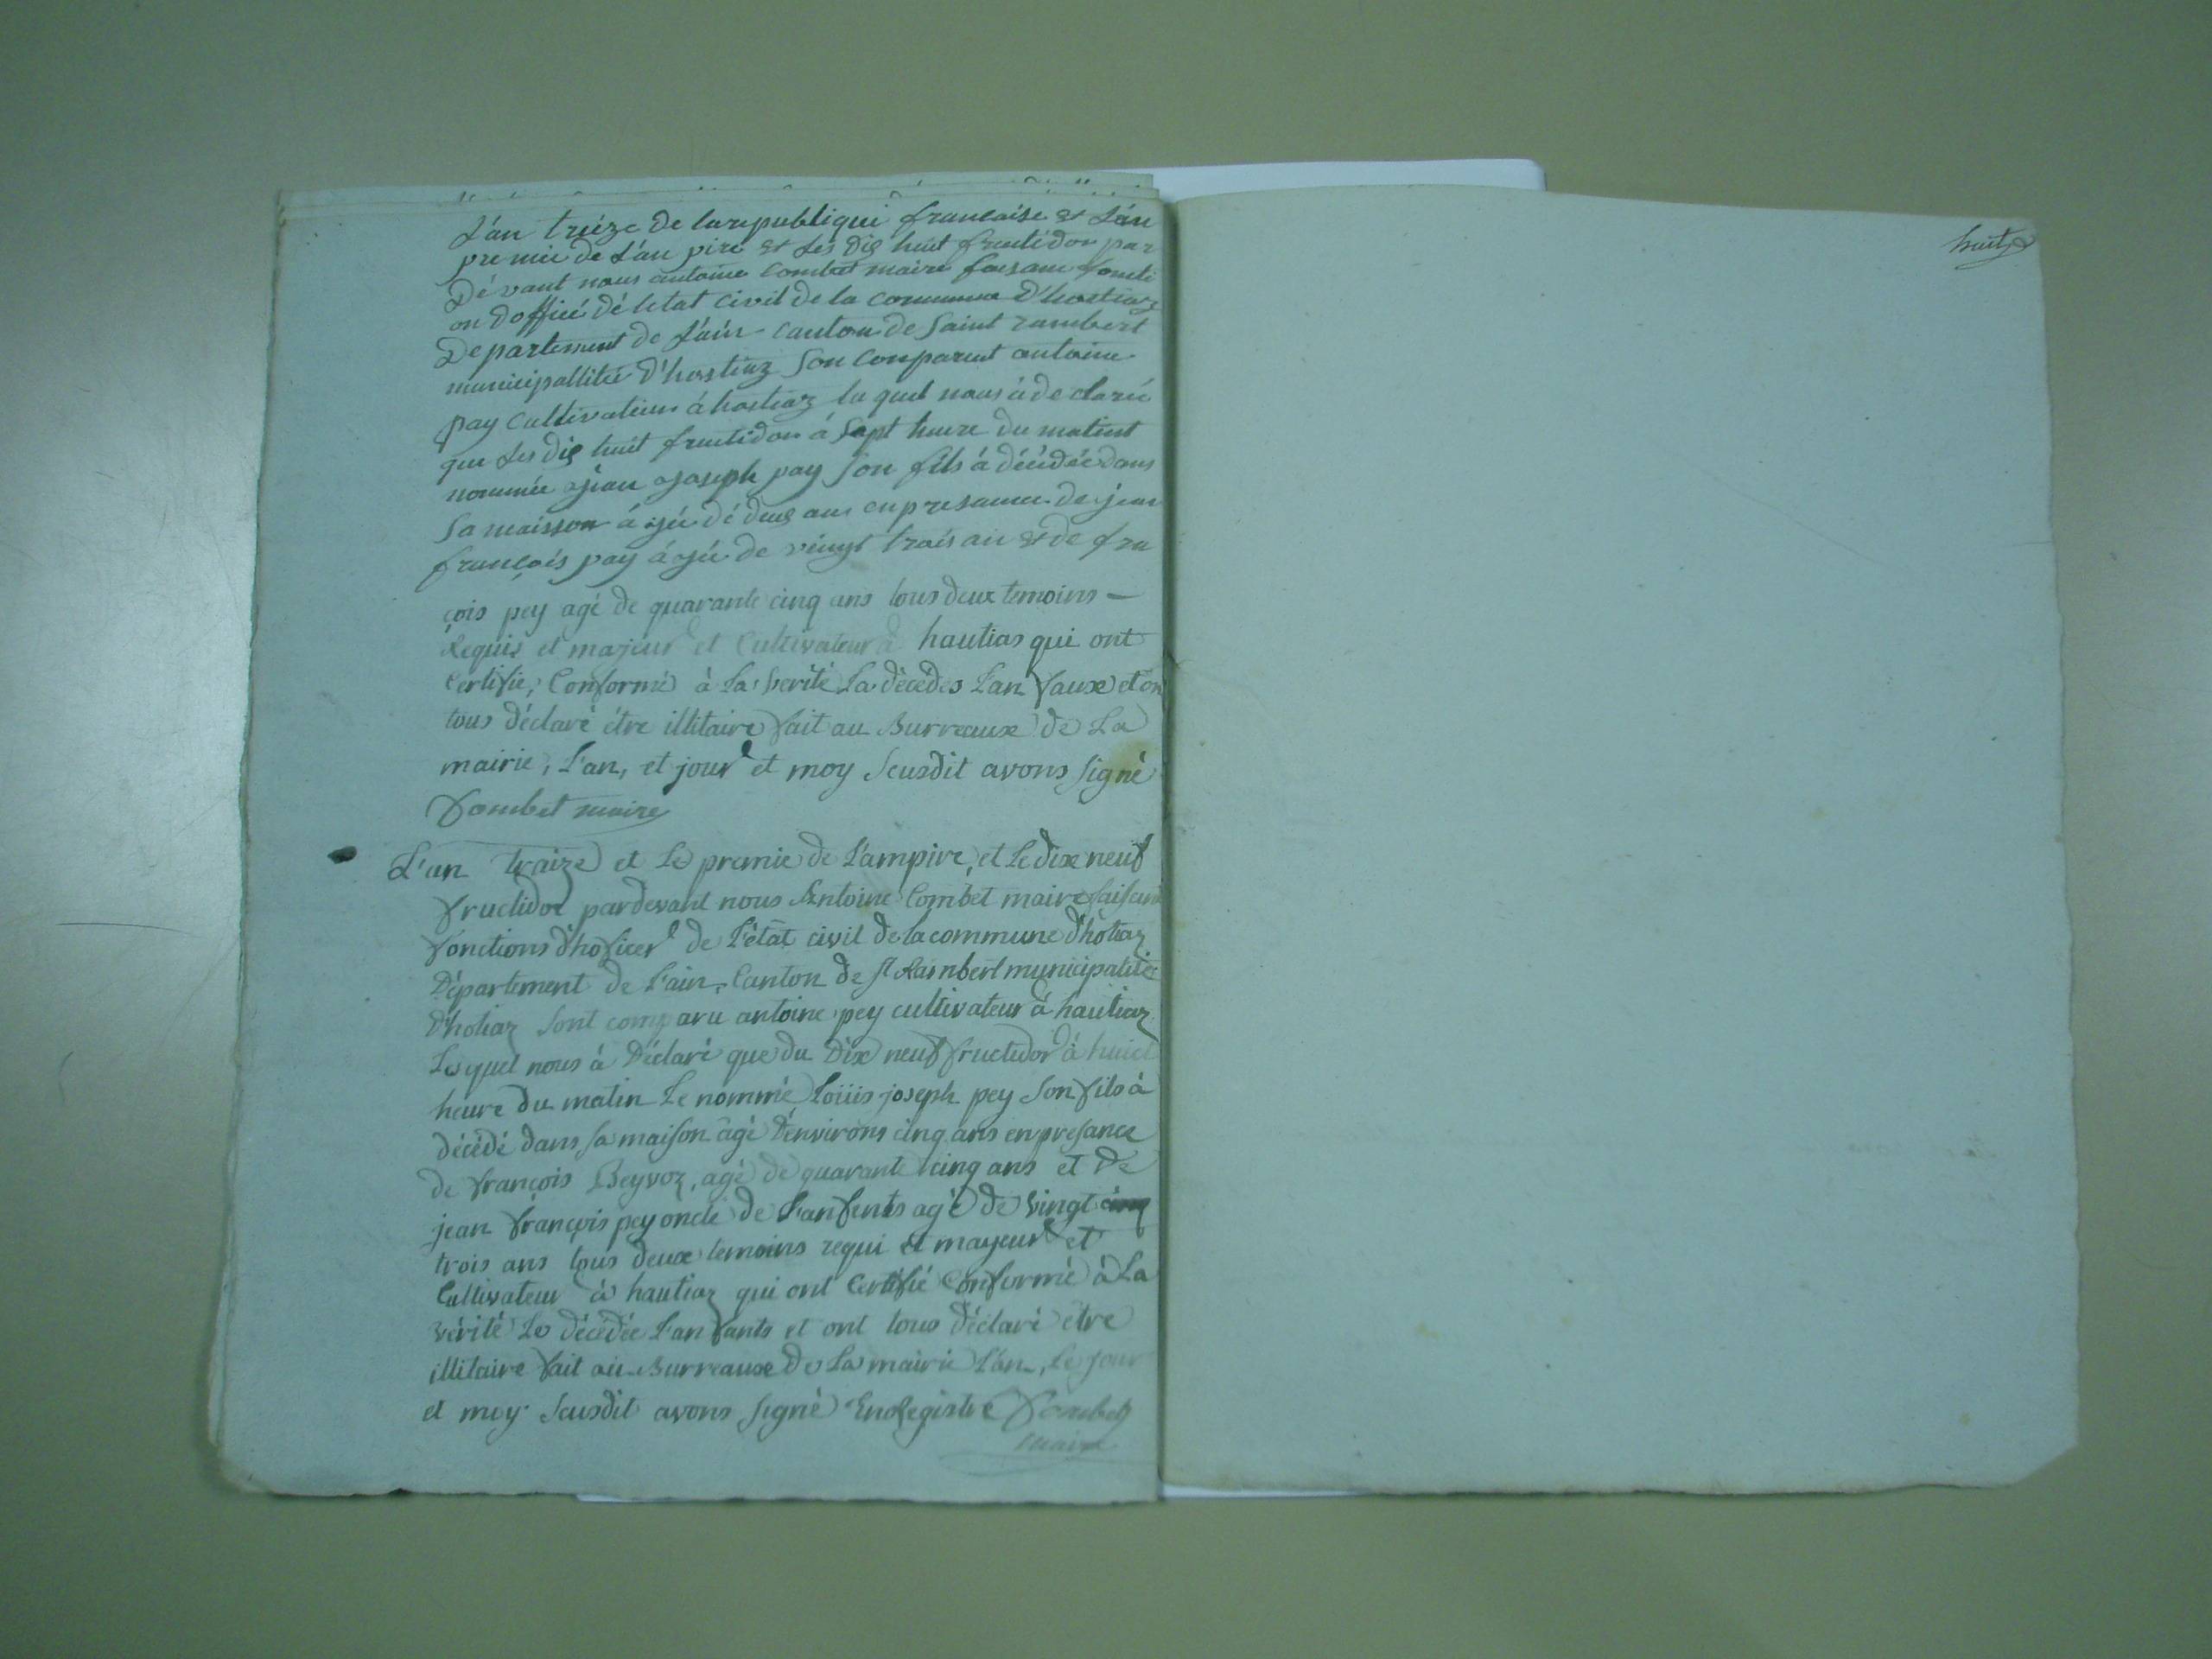 L'an treize de larepubliqui francaise et L'an
premie de L'an pire et Les dis huit fructidor par
Dévant nous antoine combet maire faisant foncti
on d'officié dé létat civil de la commune D'hostiaz
Departement de L'ain canton de Saint rambert
municipallitée D'hostiaz Son comparut antoine
pay Cultivateur á hostiaz le quel nous á de claréé
que Les dis huit fructidor á Sept heure Du matint
nommée jean joseph pay Son fils á décédée dans
Sa maisson á gée dé deus ans en presance de jean
françois pay ágée de vingt trois an et de fra
çois pey agé de quarante cinq ans tous deux temoins —
Requis et majeur et Cultivateur à hautias qui ont
Certifie, Conformé à La verité La décédes L'an faux et on
tous déclaré étre illitaire fait au Burreaux de La
mairie, L'an, et jour et moy Seusdit avons Signé
Combet maire
L'an traize et Le premie de L'ampire, et Le dix neuf
fructidor pardevant nous Antoine Combet maire faisant
fonctions d'hoficer de L'état civil de la commune d'hôtiaz
Département de L'ain, Canton de St Rambert municipalité
D'hotiaz Sont comparu antoine pey cultivateur à hautiaz
Lequel nous à Déclaré que du Dix neuf fructidor à huict
heure du matin Le nommé Loüis joseph pey Son fils à
décédé dans Sa maison âgé D'environs cinq ans en presance
de françois Beyvoz, agé de quarante cinq ans et De
jean françois pey oncle de L'anfents agé de vingt cinq
trois ans tous deux temoins requi et mayeur et
Cultivateur à hautiaz qui ont Certifié Conformé à La
vérité Le décédée L'anfants et ont tous déclaré etre
illitaire fait au Burreaux De La mairie L'an, Le jour
et moy Seusdit avons Signé Enregistre Combet
maire
huit